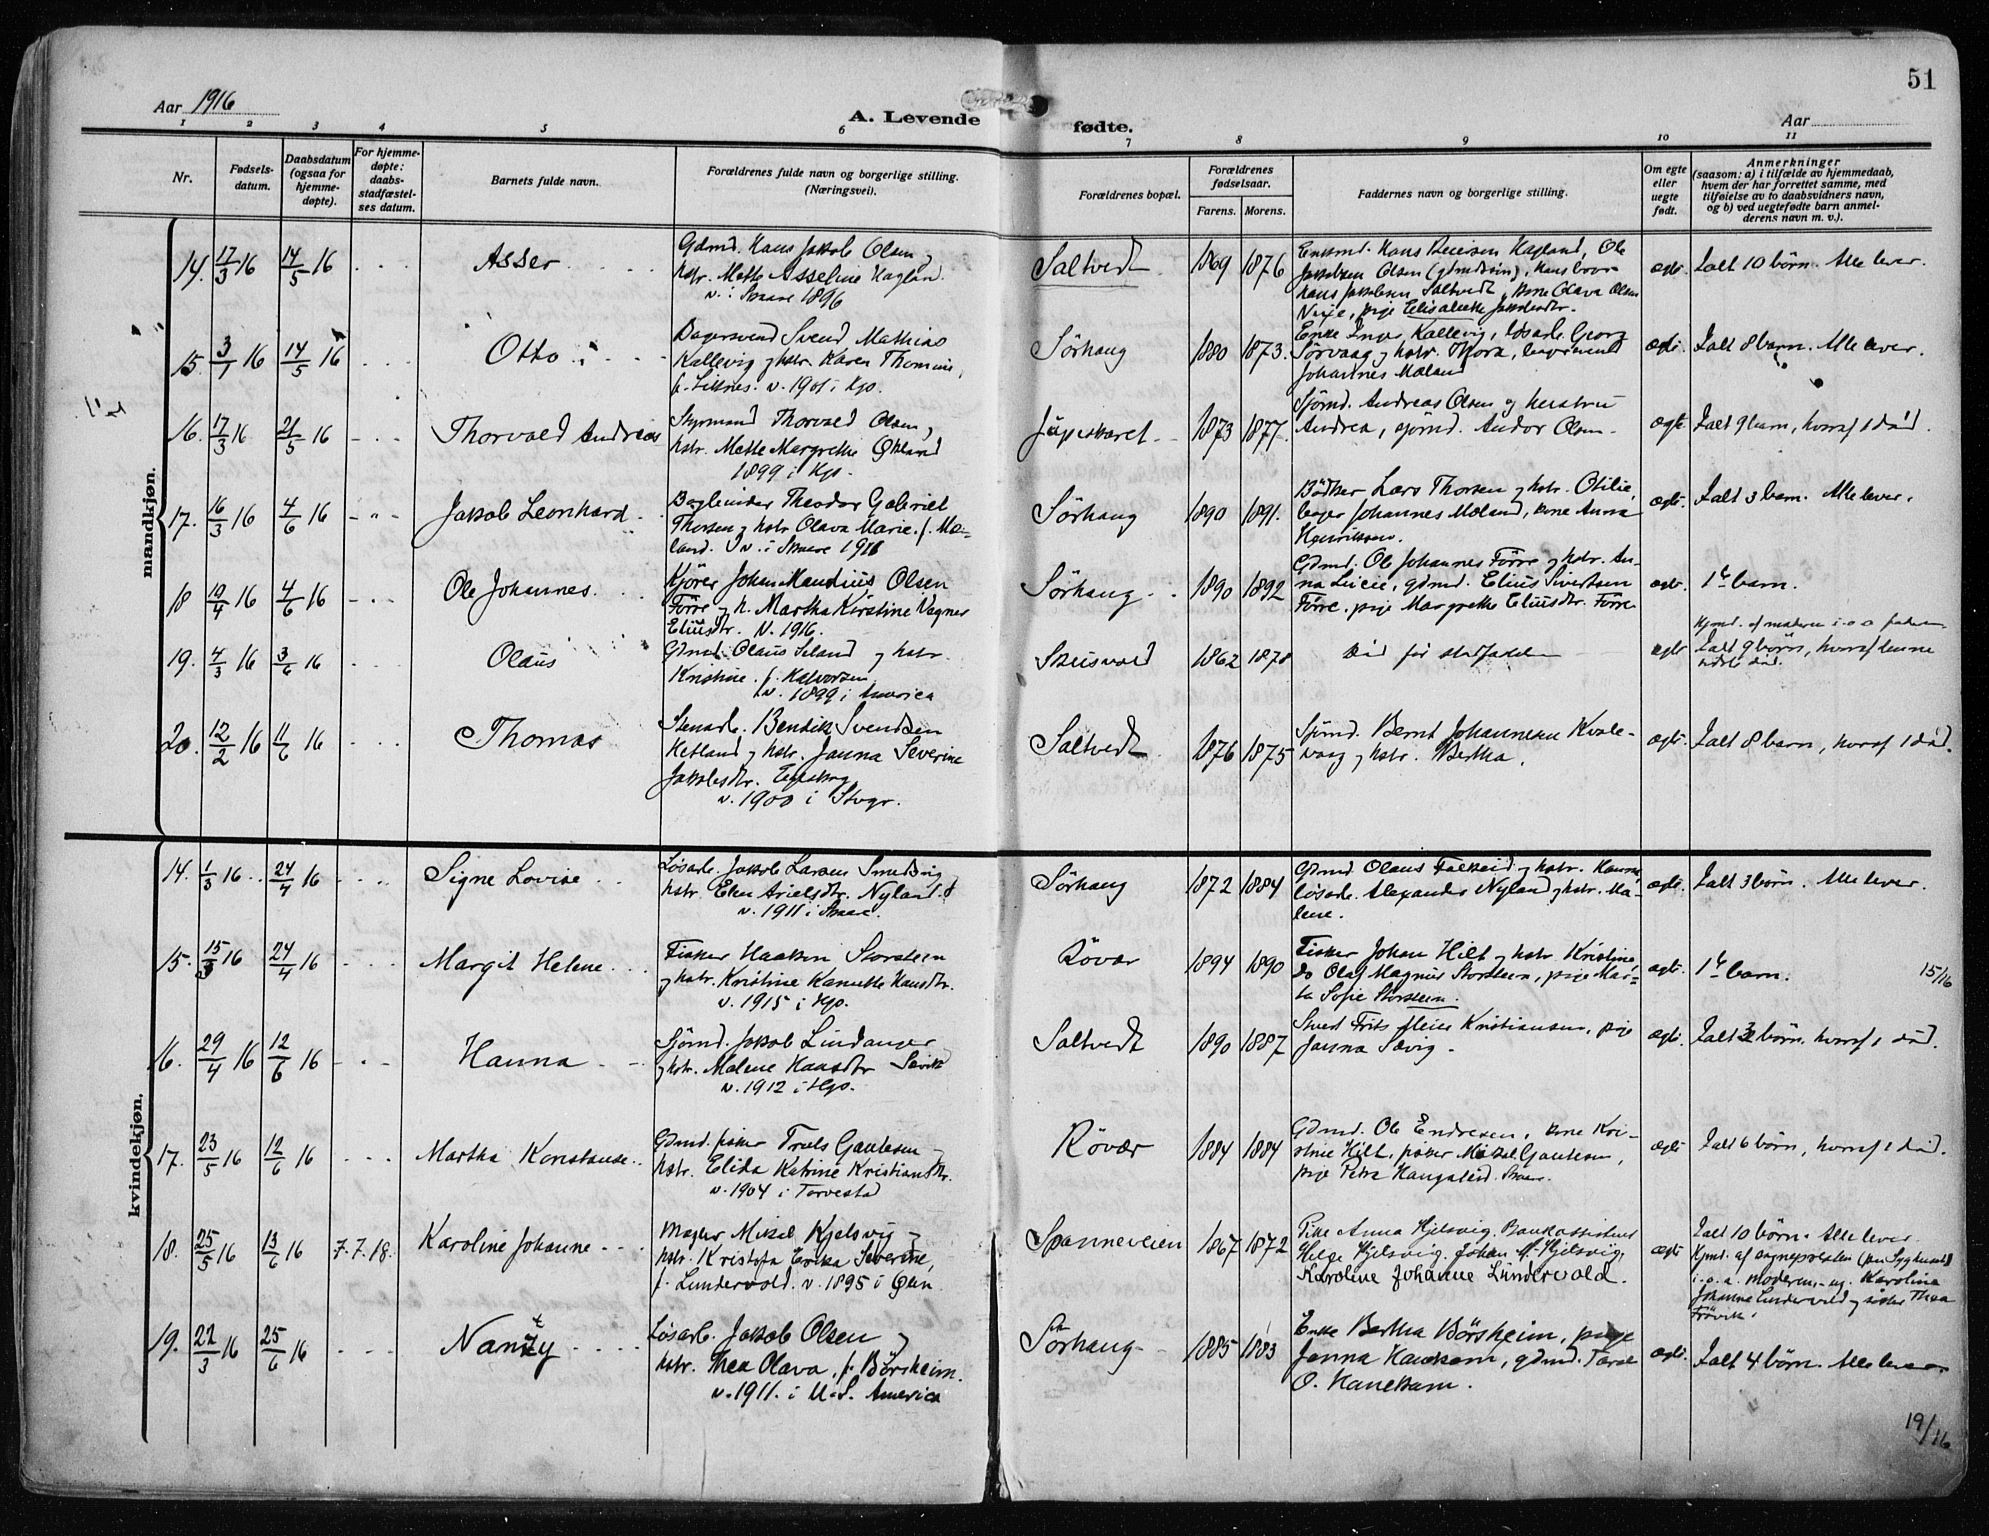 51
Aar 1916
A. Levende fødte.
Aar
1 2 3 4 5 6 7 8 9 10 11
Nr.
Fødsels-
datum.
Daabsdatum
(ogsaa for
hjemme-
døpte).
For hjemme-
døpte:
daabs-
stadfæstel-
ses datum.
Barnets fulde navn.
Forældrenes fulde navn og borgerlige stilling.
(Næringsvei).
Forældrenes bopæl.
Forældrenes
fødselsaar.
Farens. Morens.
Faddernes navn og borgerlige stilling.
Om egte
eller
uegte
født.
Anmerkninger
(saasom: a) i tilfælde av hjemmedaab,
hvem der har forrettet samme, med
tilføielse av to daabsvidners navn,
og b) ved uegtefødte barn anmel-
derens navn m. v.).
mandkjøn.
14. 17/3 16 14/5 16 Asser
Gdmd. Hans Jakob Olsen og
hstr. Mette Asseline Hagland
v. i Skaare 1896
Saltvedt 1869 1876
Enkemd. Hans Hagland, Ole
Jakobsen Olsen
Hans Jakobsen Saltvedt, Olava Olsen
pige Elisabeth Jakobsdtr.
egte Ialt 10 børn. Alle lever.
15. 3/1 16 14/5 16 Otto
Bagersvend Svend Mathias
Kallevig og hstr. Karen Thomine,
v. 1901 i Hgs.
Sørhaug 1880 1873.
Enke Inger Kallevig, løsarb. Georg
Sørvaag og hstr. Thora,
Johannes Mæland
egte. Ialt 8 barn. Alle lever.
16. 17/3 16 21/5 16 Thorvald Andreas
Styrmand Thorvald Olsen og
hstr. Mette Margrethe Økland
1899 i Hgs.
1873 1877
Sjømd. Andreas Olsen og hustru
Andrea, sjømd. Andor Olsen
egte Ialt 9 barn, hvoraf 1 død.
17. 16/3 16 4/6 16 Jakob Leonhard
Theodor Gabriel
Thorsen og hstr. Olava Marie f. Mæ-
land. v. i Skaare 1911
Sørhaug 1890 1891.
Bødker Lars Thorsen og hstr. Otilie,
bager Johannes Mæland, kone Anna
Henriksen
egte. Ialt 3 barn. Alle lever.
18 10/4 16 4/6 16 Ole Johannes.
Kjører Johan Mandius Olsen
Førre og h. Martha Kirstine Vagner
Eliusdtr. v. 1916.
Sørhaug 1890 1892
Gdmd. Ole Johannes Førre og hstr. An-
na Lucie, gdmd. Elius Sivertsen
Førre. pige Margrethe Eliusdtr. Førre
egte 1ste barn.
19. 4/3 16 3/6 16 Olaus
Gdmd Olaus og hstr.
Kristine f. Halvorsen
v. 1899 i Amerika
1862 1878
egte Ialt 9 børn, hvoraf denne
sidste død.
20. 12/2 16 11/6 16 Thomas
Stenarb. Bendik Svendsen
Hetland og hstr. Janna Severine
Jakobsdtr. Egeskog
v. 1900 i Stvgr.
Saltvedt 1876 1875
Sjømd. Bernt Johannesen Kvale-
vaag og hstr. Bertha.
egte Ialt 8 barn, hvoraf 1 død.
kvindekjøn.
14. 1/3 16 24/4 16 Signe Lovise
Løsarb. Jakob Larsen Smedsvig
hstr. Elen Arielsdtr. Nyland.
v. 1911 i Skaare.
Sørhaug 1872 1884
Gdmd Olaus Falkeid og hstr. Hanna
løsarb. Alexander Nyland og hstr. Ma-
lene.
egte. Ialt 3 børn. Alle lever.
15. 15/3 16 24/4 16 Margit Helene
Fisker Haakon Storsteen
og hstr. Kristine Kanutte Hansdtr.
v. 1915 i Hgs.
Røvær 1894 1890
Fisker Johan Hilt og hstr. Kristine,
do Olaf Magnus Storsteen, pige Mar-
ta Sofie Storsteen.
egte. 1ste barn. 15/16
16. 29/4 16 12/6 16 Hanna
Sjømd. Jakob Lindanger
og hstr. Malene Hansdtr Sævik
v. 1912 i Hgs.
Saltvedt 1890 1887
Frits Kristiansen, pige
Janna Sævig.
egte. Ialt 3 børn. hvoraf 1 død.
17. 23/5 16 12/6 16 Martha Konstanse
Gdmd. fisker Truls Gautesen og
hstr. Elida Katrine Kristiansdtr.
v. 1904 i Torvestad
Røvær 1884 1884
Gdmd. Ole Endresen, kone Kri-
stine Hilt, fisker Mikal Gautesen,
pige Petra Haugsleid. Skaare.
egte Ialt 6 børn, hvoraf 1 død.
18. 25/5 16 13/6 16 7.7.18. Karoline Johanne
Mægler Mikal Hjelsvig og
hstr. Kristofa Erika Severine,
f. Lundervold. v. 1895 i Ølen
Spanneveien 1867 1872
Pike Anna Hjelsvig. Bankassistent
Helge Hjelsvig. Johan M. Hjelsvig,
Karoline Johanne Lundervold.
egte Ialt 10 børn. Alle lever.
Hjmd. af sognepresten
moderen og Karoline
Johanne Lundervold og søster Thea
19. 22/3 16 25/6 16 Nanzy
Løsarb. Jakob Olsen og
hstr. Thea Olava, f. Børsheim.
v. 1911. i U.S. America
Sørhaug 1885 1883
Enke Bertha Børsheim, pige
Janna Hanekam, gdmd. Tore
O. Hanekam.
egte. Ialt 4 børn. Alle lever.
19/16